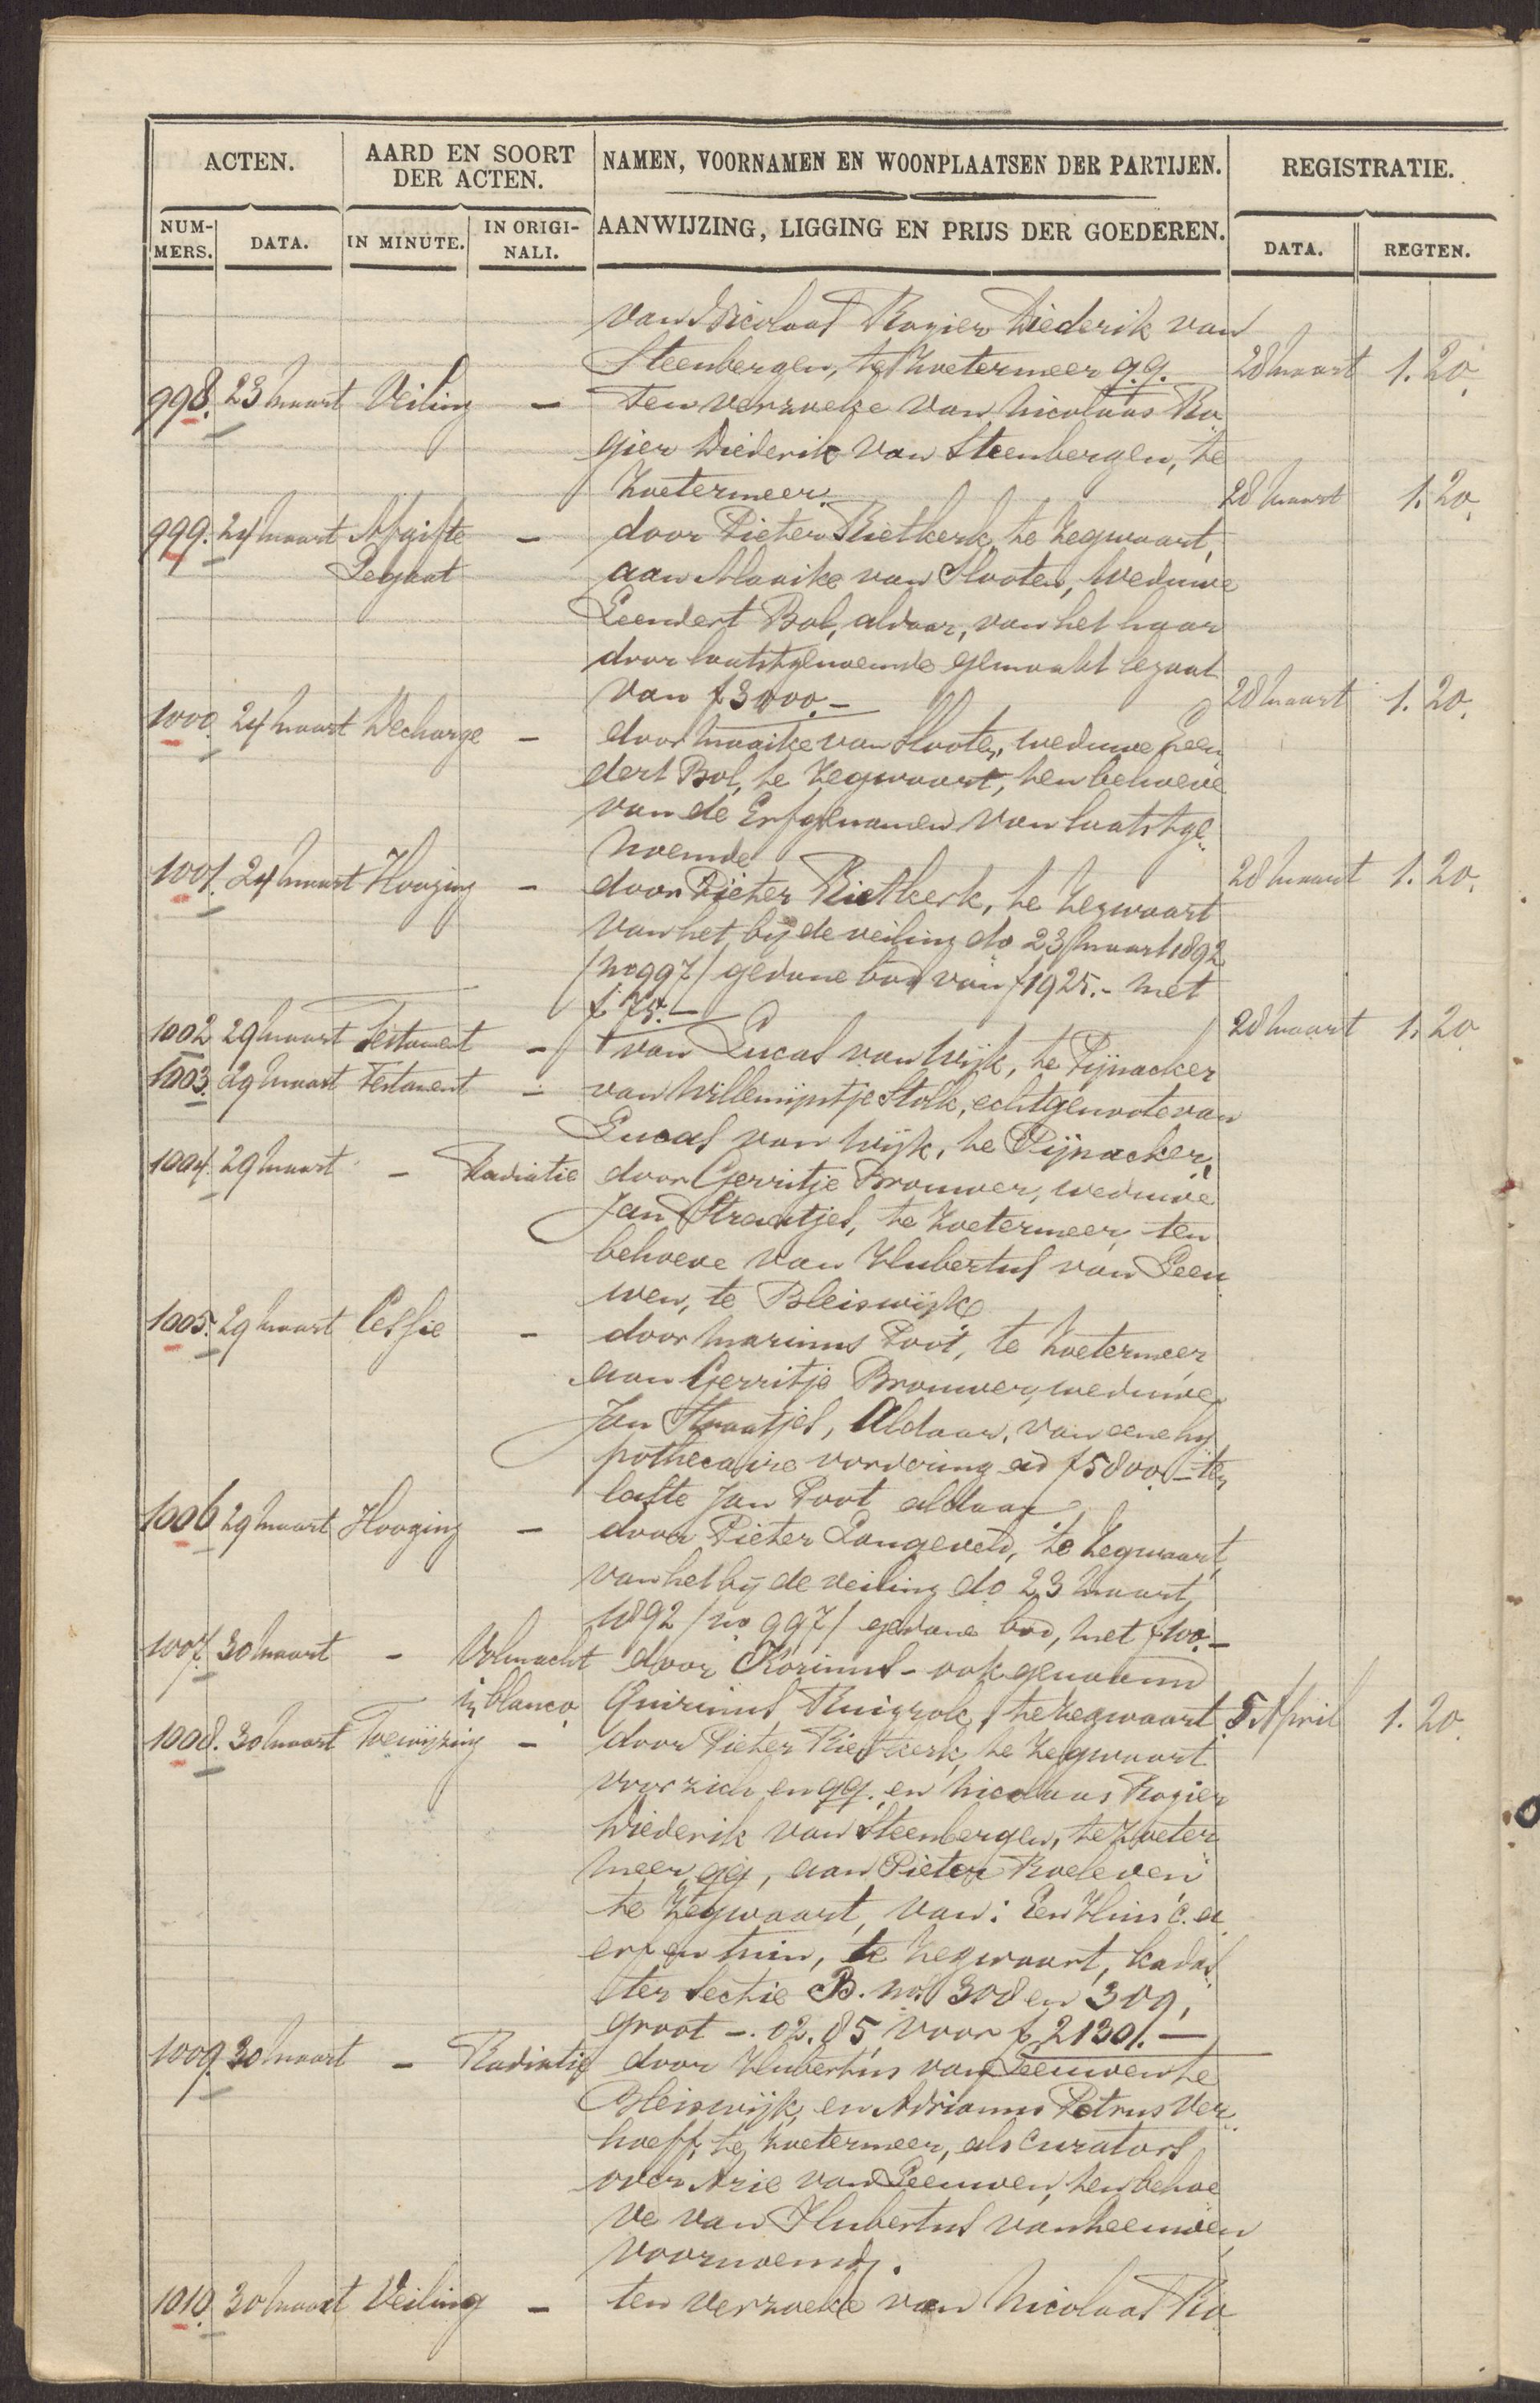 ACTEN. AARD EN SOORT DER ACTEN. NAMEN, VOORNAMEN EN WOONPLAATSEN DER PARTIJEN. REGISTRATIE.
NUM-MERS. DATA. IN MINUTE. IN ORIGI-NALI. AANWIJZING, LIGGING EN PRIJS DER GOEDEREN. DATA. REGTEN.
van Nicolaas Rogier Diederik van
Steenbergen, te Zoetermeer q.q. 28 Maart 1.20.
998. 23 Maart Veiling - ten verzoeke van Nicolaas Ro
gier Diederik van Steenbergen, te
Zoetermeer. 28 Maart 1.20.
999. 24 Maart Afgifte - door Pieter Rietkerk, te Zegwaart,
Legaat aan Maaike van Slooten, weduwe
Leendert Bol, aldaar, van het haar
door laatstgenoemde gemaakt legaat
van f 3000.- 28 Maart 1.20.
1000. 24 Maart Decharge - door Maaike van Slooten, weduwe Leen
dert Bol, te Zegwaart, ten behoeve
van de Erfgenamen van laatstge
noemde 28 Maart 1.20.
1001. 24 Maart Hooging - door Pieter Rietkerk, te Zegwaart
van het bij de veiling do 23 Maart 1892
/no 997/ gedane bod van f 1925.- met
f 75.- 28 Maart 1.20
1002 29 Maart Testament - van Lucas van Wijk, te Pijnacker
1003. 29 Maart Testament - van Willemijntje Stolk, echtgenoote van
Lucas van Wijk, te Pijnacker,
1004. 29 Maart - Radiatie door Gerritje Brouwer, weduwe
Jan Straatjes, te Zoetermeer, ten
behoeve van Hubertus van Leeu
wen, te Bleiswijk
1005. 29 Maart Cessie - door Marinus Poot, te Zoetermeer,
aan Gerritje Brouwer, weduwe
Jan Straatjes, Aldaar, van eene hy
pothecaire vordering ad f 5800.- ten
laste Jan Poot aldaar
1006 29 Maart Hooging - door Pieter Langeveld, te Zegwaart,
van het bij de veiling do 23 Maart
1892 /no 997/ gedane bod, met f 100.-
1007. 30 Maart - Volmacht door Korinus - ook genaamd
in blanco Quirinus Ruigrok, te Zegwaart 5 April 1.20.
1008. 30 Maart Toewijzing - door Pieter Rietkerk, te Zegwaart
voor zich en qq. en Nicolaas Rogier
Diederik van Steenbergen, te Zoeter
meer, qq, aan Pieter Roeleven
te Zegwaart, van: Een Huis c.a.
erf en tuin, te Zegwaart, kadas
ter Sectie B. nos 308 en 309,
groot -.02.85, voor f 2130.-
1009. 30 Maart - Radiatie door Hubertus van Leeuwen te
Bleiswijk, en Adrianus Petrus Ver
hoeff, te Zoetermeer, als Curators
over Arie van Leeuwen, ten behoe
ve van Hubertus van Leeuwen,
voornoemd.
1010. 30 Maart Veiling - ten verzoeke van Nicolaas Ro